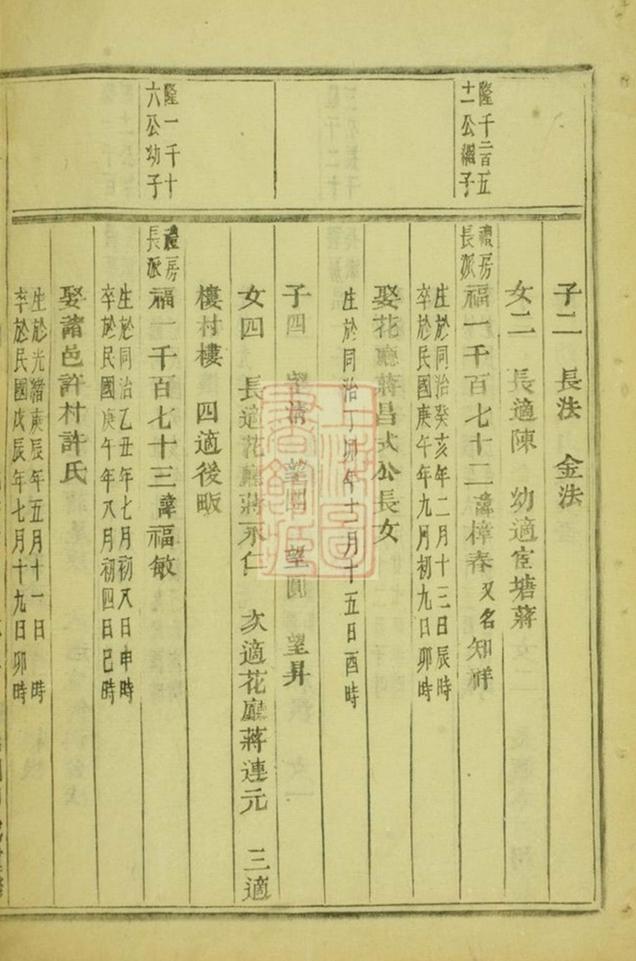 子二　長法　金法
女二　長適陳　幼適宦塘蔣
隆千二百五
十一公繼子
禮房
長派
福一千百七十二諱樟春又名知祥
生於同治癸亥年二月十三日辰時
卒於民國庚午年九月初九日卯時
娶花廳蔣昌公長女
生於同治丁卯年十二月十五日酉時
子四　望　望　望圓　望昇
女四　長適花廳蔣承仁　次適花廳蔣連元　三適
樓村樓　四適後畈
隆一千十
六公幼子
禮房
長派
福一千百七十三諱福敏
生於同治乙丑年七月初八日申時
卒於民國庚午年八月初四日巳時
娶諸邑許村許氏
生於光緒庚辰年五月十一日時
卒於民國戊辰年七月十九日卯時